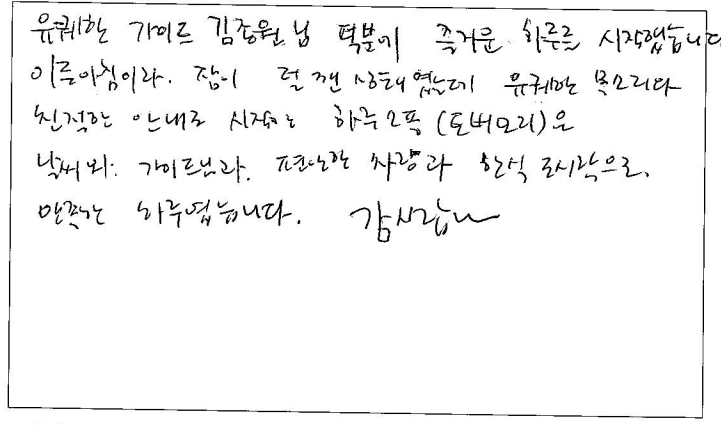 유쾌한 가이드 김종원님 덕분에 즐거운 하루를 시작했습니다
이른아침이라. 잠이 덜 깬 상태였는데 유쾌한 목소리와
친절한 안내로 시작하는 하루 소풍 (토버모리)은
날씨와. 가이드님과. 편안한 차량과 한식 도시락으로.
만족하는 하루였습니다. 감사합니다